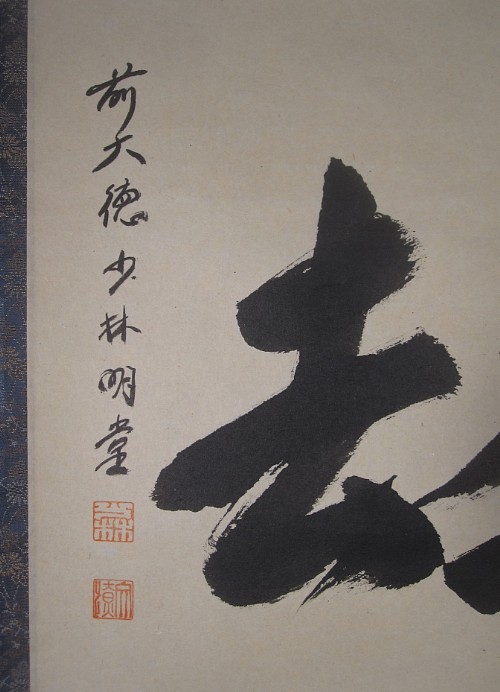 去
前大徳少林明堂